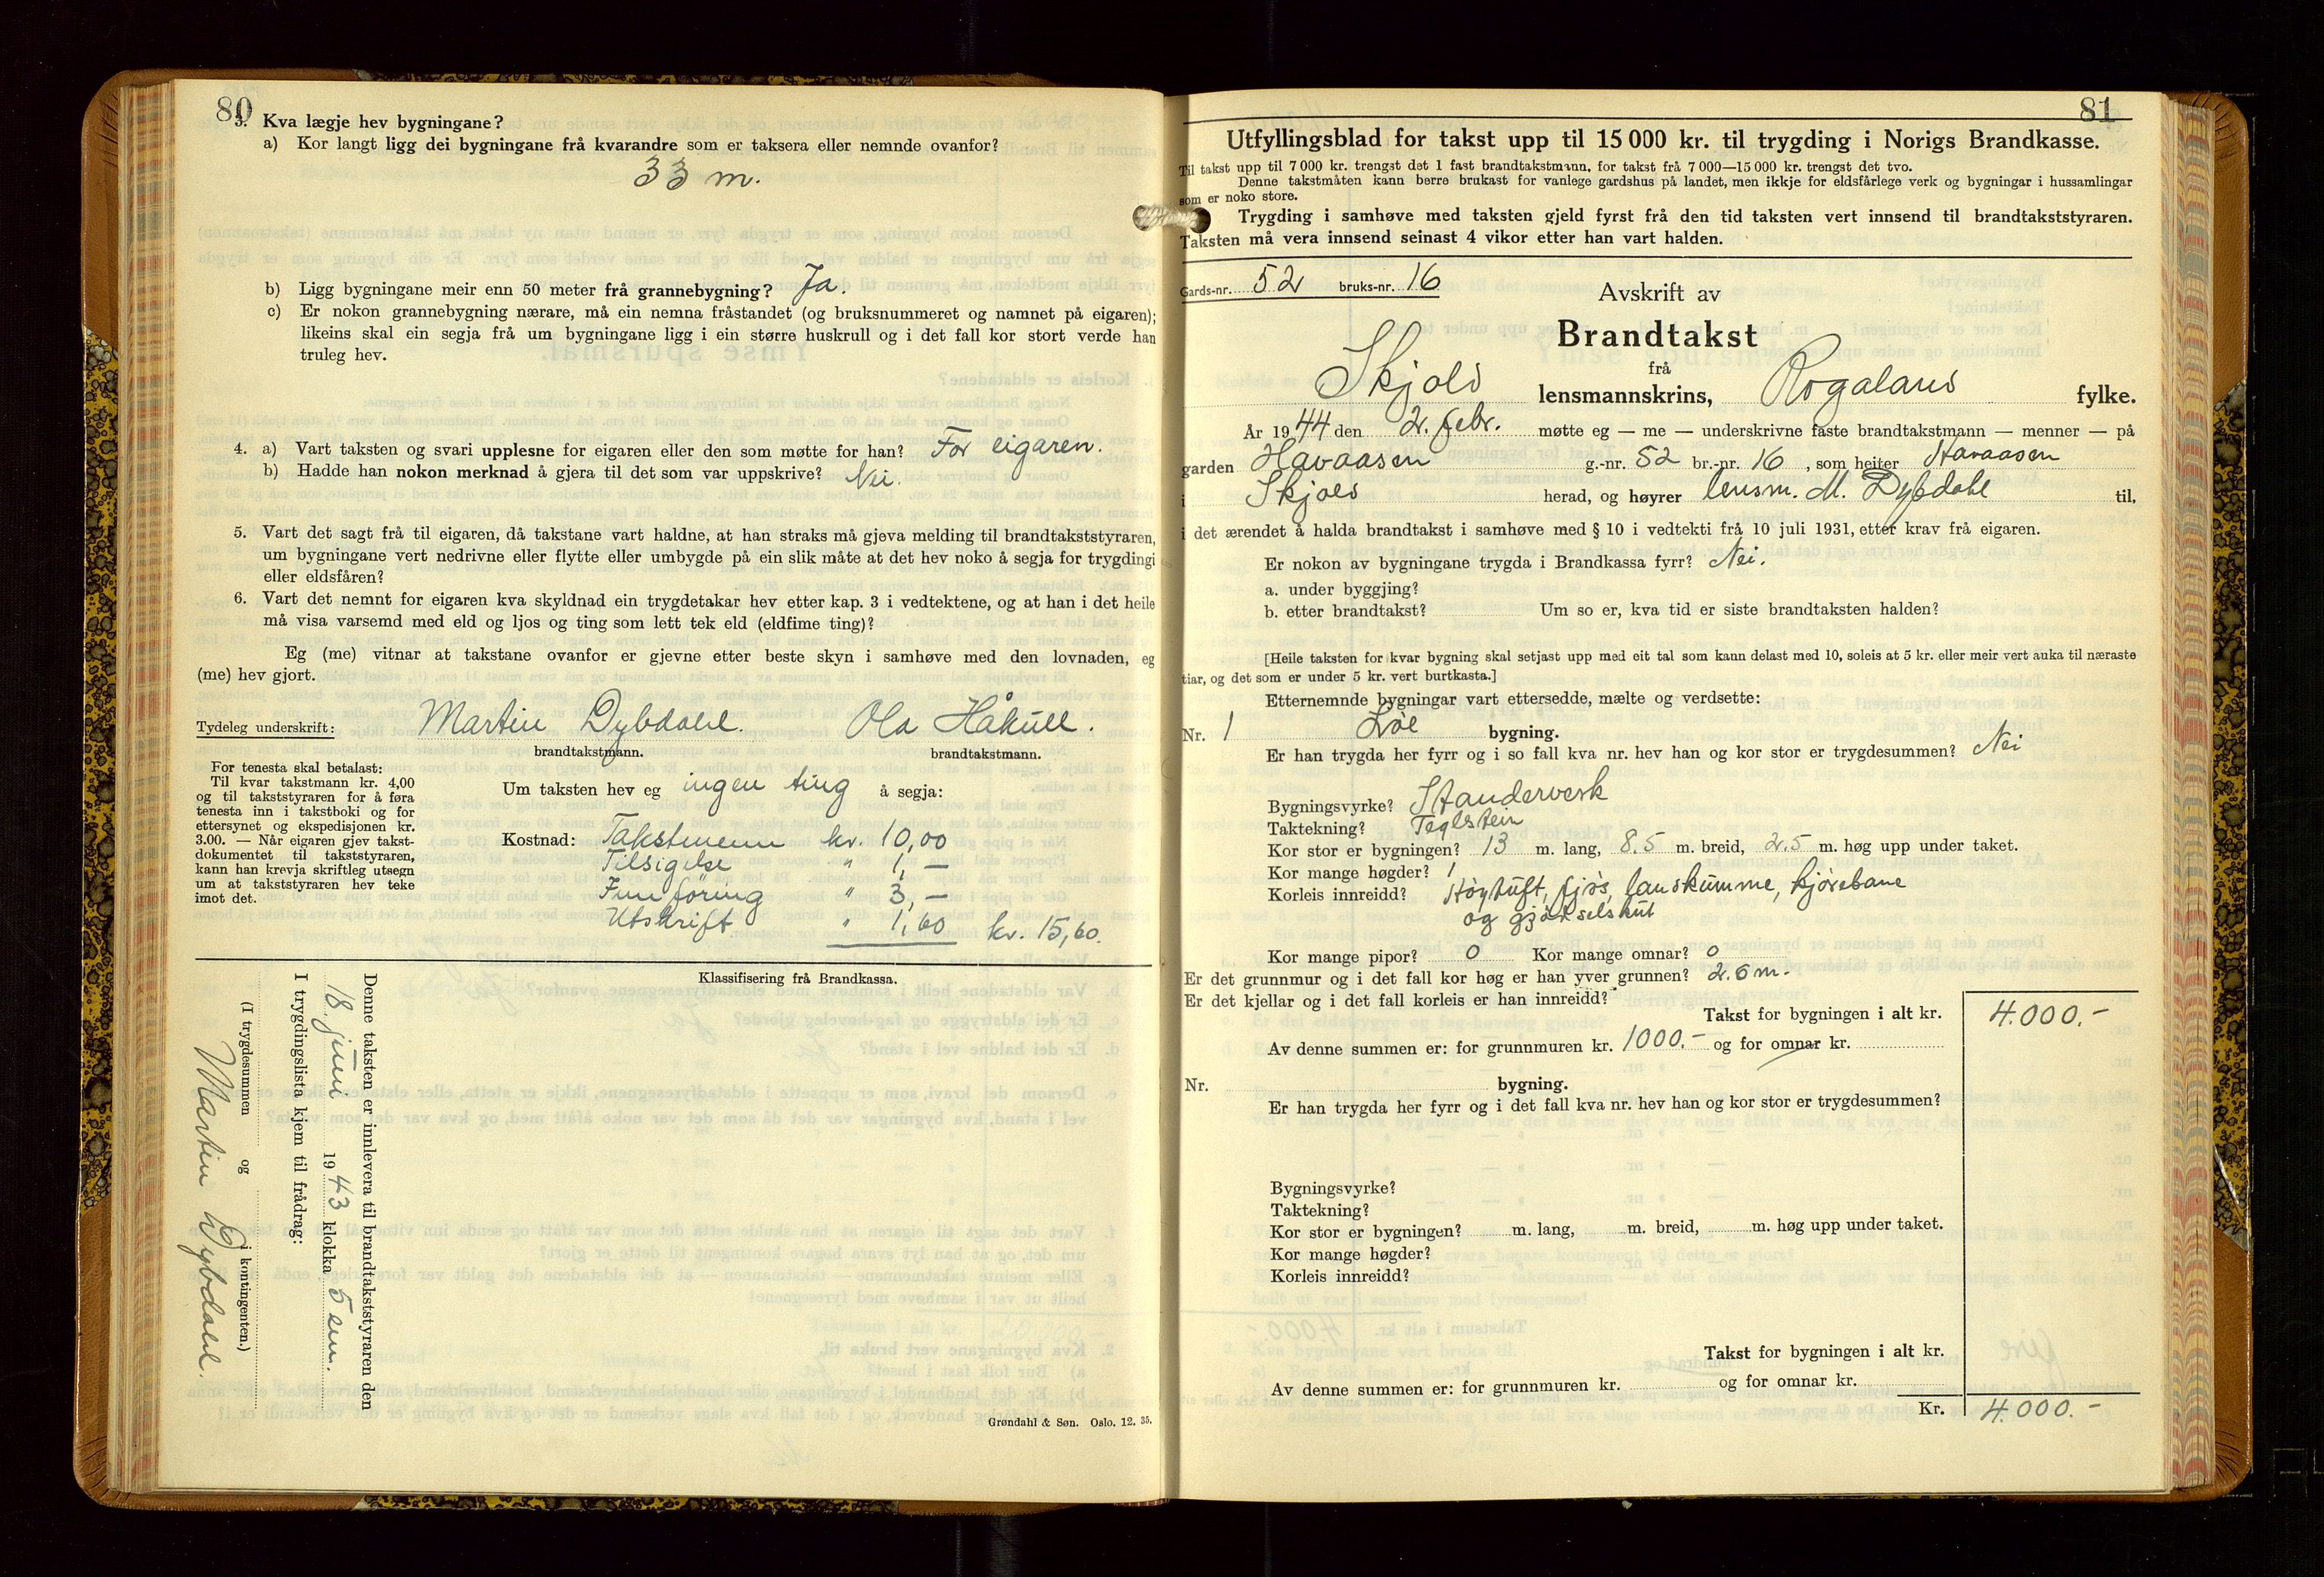 80
3. Kva lægje hev bygningane?
a) Kor langt ligg dei bygningane frå kvarandre som er taksera eller nemnde ovanfor?
33 m.
b) Ligg bygningane meir enn 50 meter frå grannebygning? Ja.
c) Er nokon grannebygning nærare, må ein nemna fråstandet (og bruksnummeret og namnet på eigaren);
likeins skal ein segja frå um bygningane ligg i ein større huskrull og i det fall kor stort verde han
truleg hev.
4. a) Vart taksten og svari upplesne for eigaren eller den som møtte for han? For eigaren.
b) Hadde han nokon merknad å gjera til det som var uppskrive? Nei.
5. Vart det sagt frå til eigaren, då takstane vart haldne, at han straks må gjeva melding til brandtakststyraren,
um bygningane vert nedrivne eller flytte eller umbygde på ein slik måte at det hev noko å segja for trygdingi
eller eldsfåren?
6. Vart det nemnt for eigaren kva skyldnad ein trygdetakar hev etter kap. 3 i vedtektene, og at han i det heile
må visa varsemd med eld og ljos og ting som lett tek eld (eldfime ting)?
Eg (me) vitnar at takstane ovanfor er gjevne etter beste skyn i samhøve med den lovnaden, eg
(me) hev gjort.
Tydeleg underskrift: Martin Dybdahl. Ola Håkull.
brandtakstmann. brandtakstmann.
For tenesta skal betalast:
Til kvar takstmann kr. 4,00
og til takststyraren for å føra
tenesta inn i takstboki og for
ettersynet og ekspedisjonen kr.
3.00. — Når eigaren gjev takst-
dokumentet til takststyraren,
kann han krevja skriftleg utsegn
um at takststyraren hev teke
imot det.
Um taksten hev eg ingen ting å segja:
Kostnad: Takstmenn kr. 10,00
Tilsigelse " 1,—
Innföring " 3,—
Utskrift " 1,60 kr. 15,60.
Klassifisering frå Brandkassa.
Denne taksten er innlevera til brandtakststyraren den
18. juni 1943 klokka 5 em.
I trygdingslista kjem til frådrag:
(I trygdesummen og i kontingenten.)
Martin Dybdahl.
Grøndahl & Søn. Oslo. 12. 35.
81
Utfyllingsblad for takst upp til 15 000 kr. til trygding i Norigs Brandkasse.
Til takst upp til 7 000 kr. trengst det 1 fast brandtakstmann, for takst frå 7 000—15 000 kr. trengst det tvo.
Denne takstmåten kann berre brukast for vanlege gardshus på landet, men ikkje for eldsfårlege verk og bygningar i hussamlingar
som er noko store.
Trygding i samhøve med taksten gjeld fyrst frå den tid taksten vert innsend til brandtakststyraren.
Taksten må vera innsend seinast 4 vikor etter han vart halden.
Gards-nr. 52 bruks-nr. 16
Avskrift av
Brandtakst
frå
Skjold lensmannskrins, Rogaland fylke.
År 1944 den 2. febr. møtte eg — me — underskrivne faste brandtakstmann — menner — på
garden Havaasen g.-nr. 52 br.-nr. 16, som heiter Havaasen
i Skjold herad, og høyrer lensm. M. Dybdahl til,
i det ærendet å halda brandtakst i samhøve med § 10 i vedtekti frå 10 juli 1931, etter krav frå eigaren.
Er nokon av bygningane trygda i Brandkassa fyrr? Nei.
a. under byggjing?
b. etter brandtakst? Um so er, kva tid er siste brandtaksten halden?
[Heile taksten for kvar bygning skal setjast upp med eit tal som kann delast med 10, soleis at 5 kr. eller meir vert auka til næraste
tiar, og det som er under 5 kr. vert burtkasta.]
Etternemnde bygningar vart ettersedde, mælte og verdsette:
Nr. 1 Löe bygning.
Er han trygda her fyrr og i so fall kva nr. hev han og kor stor er trygdesummen? Nei
Bygningsvyrke? Standerverk
Taktekning? Teglstein
Kor stor er bygningen? 13 m. lang, 8.5 m. breid, 2.5 m. høg upp under taket.
Kor mange høgder? 1
Korleis innreidd? Höytuft, fjös, landkumme, kjörebane
og gjödselshut
Kor mange pipor? 0 Kor mange omnar? 0
Er det grunnmur og i det fall kor høg er han yver grunnen? 2.6 m.
Er det kjellar og i det fall korleis er han innreidd?
Takst for bygningen i alt kr. 4.000.-
Av denne summen er: for grunnmuren kr. 1000.- og for omnar kr.
Nr. bygning.
Er han trygda her fyrr og i det fall kva nr. hev han og kor stor er trygdesummen?
Bygningsvyrke?
Taktekning?
Kor stor er bygningen? m. lang, m. breid, m. høg upp under taket.
Kor mange høgder?
Korleis innreidd?
Takst for bygningen i alt kr.
Av denne summen er: for grunnmuren kr. og for omnar kr.
Kr. 4.000.-